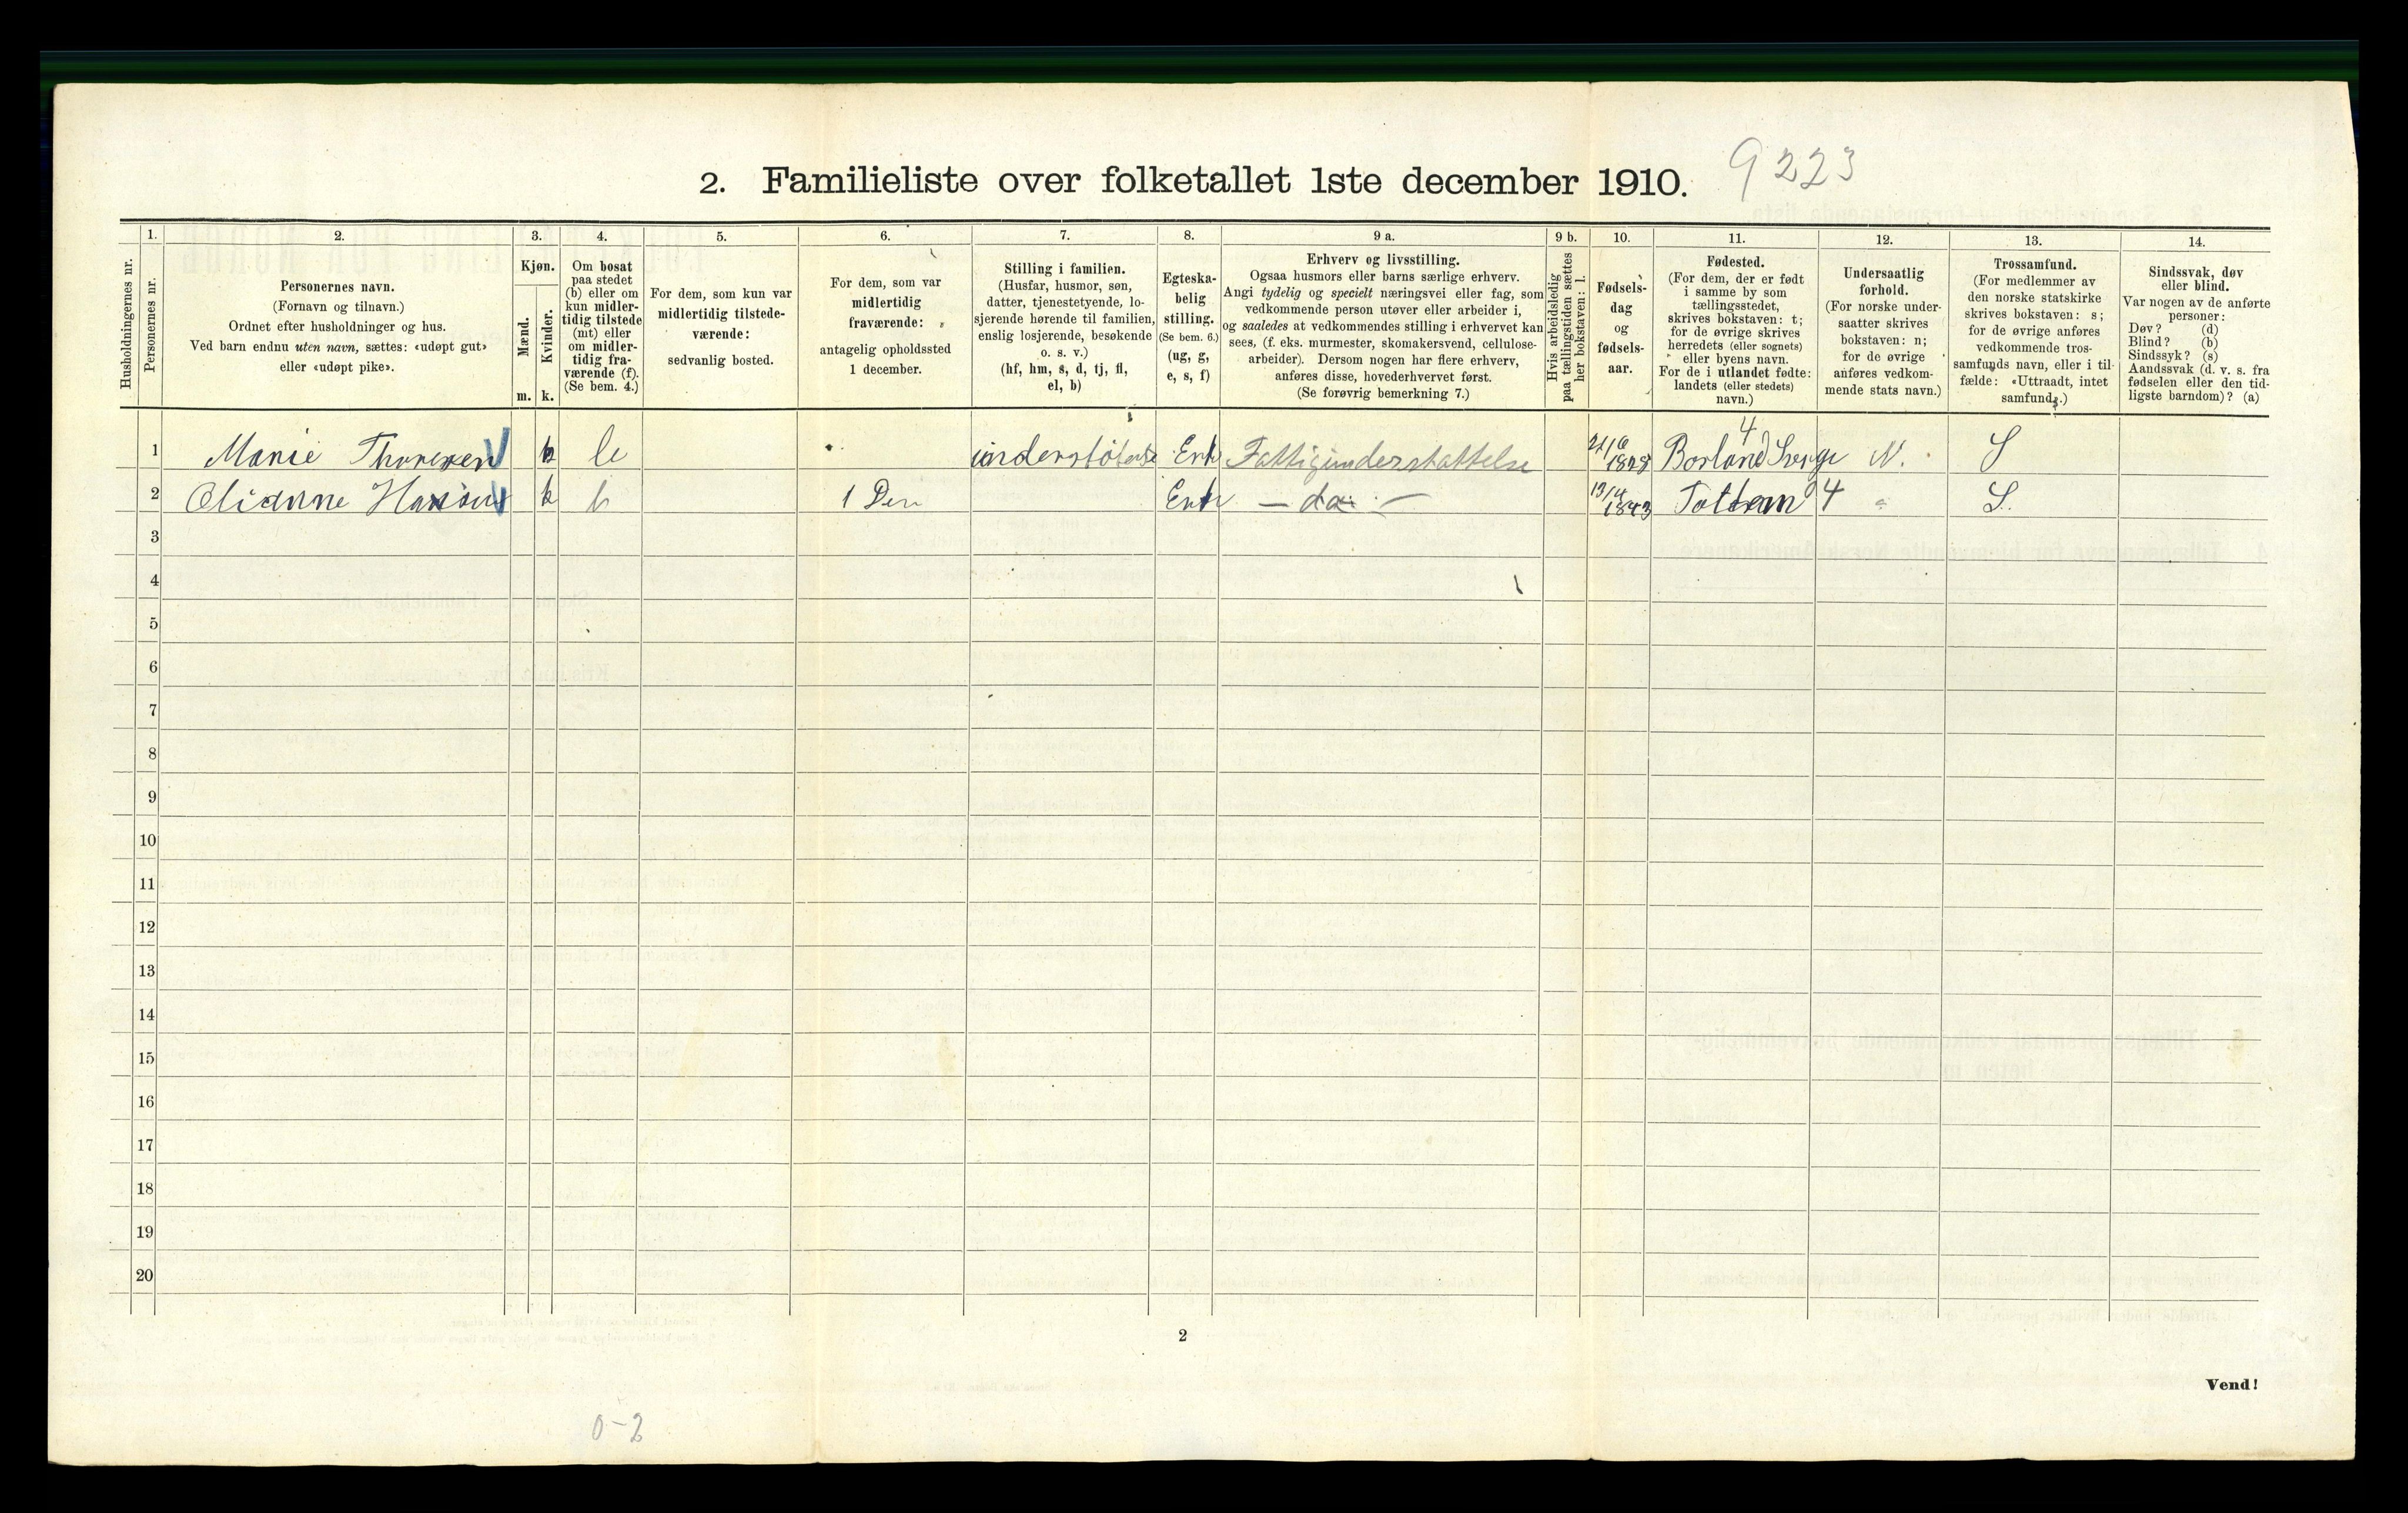 9223
2. Familieliste over folketallet 1ste december 1910.
Husholdningernes nr.
1.
Personernes nr.
2.
Personernes navn.
(Fornavn og tilnavn.)
Ordnet efter husholdninger og hus.
Ved barn endnu uten navn, sættes: «udøpt gut»
eller «udøpt pike».
3.
Kjøn.
Mænd.
Kvinder.
m. k.
4.
Om bosat
paa stedet
(b) eller om
kun midler-
tidig tilstede
(mt) eller
om midler-
tidig fra-
værende (f).
(Se bem. 4.)
5.
For dem, som kun var
midlertidig tilstede-
værende:
sedvanlig bosted.
6.
For dem, som var
midlertidig
fraværende:
antagelig opholdssted
1 december.
7.
Stilling i familien.
(Husfar, husmor, søn,
datter, tjenestetyende, lo-
sjerende hørende til familien,
enslig losjerende, besøkende
o. s. v.)
(hf, hm, s, d, tj, fl,
el, b)
8.
Egteska-
belig
stilling.
(Se bem. 6.)
(ug, g,
e, s, f)
9 a.
Erhverv og livsstilling.
Ogsaa husmors eller barns særlige erhverv.
Angi tydelig og specielt næringsvei eller fag, som
vedkommende person utøver eller arbeider i,
og saaledes at vedkommendes stilling i erhvervet kan
sees, (f. eks. murmester, skomakersvend, cellulose-
arbeider). Dersom nogen har flere erhverv,
anføres disse, hovederhvervet først.
(Se forøvrig bemerkning 7.)
9 b.
Hvis arbeidsledig
paa tællingstiden sættes
her bokstaven: l.
10.
Fødsels-
dag
og
fødsels-
aar.
11.
Fødested.
(For dem, der er født
i samme by som
tællingsstedet,
skrives bokstaven: t;
for de øvrige skrives
herredets (eller sognets)
eller byens navn.
For de i utlandet fødte:
landets (eller stedets)
navn.)
12.
Undersaatlig
forhold.
(For norske under-
saatter skrives
bokstaven: n;
for de øvrige
anføres vedkom-
mende stats navn.)
13.
Trossamfund.
(For medlemmer av
den norske statskirke
skrives bokstaven: s;
for de øvrige anføres
vedkommende tros-
samfunds navn, eller i til-
fælde: «Uttraadt, intet
samfund».)
14.
Sindssvak, døv
eller blind.
Var nogen av de anførte
personer:
Døv? (d)
Blind? (b)
Sindssyk? (s)
Aandssvak (d. v. s. fra
fødselen eller den tid-
ligste barndom)? (a)
1 Marie Thoresen k Enk Fattigunderstattelse N. S
2 Olianne Hansen k b 1 Den Enk — do. — 13/4 1843 4 S.
3
4
5
6
7
8
9
10
11
12
13
14
15
16
17
18
19
20
2
Vend!
0-2